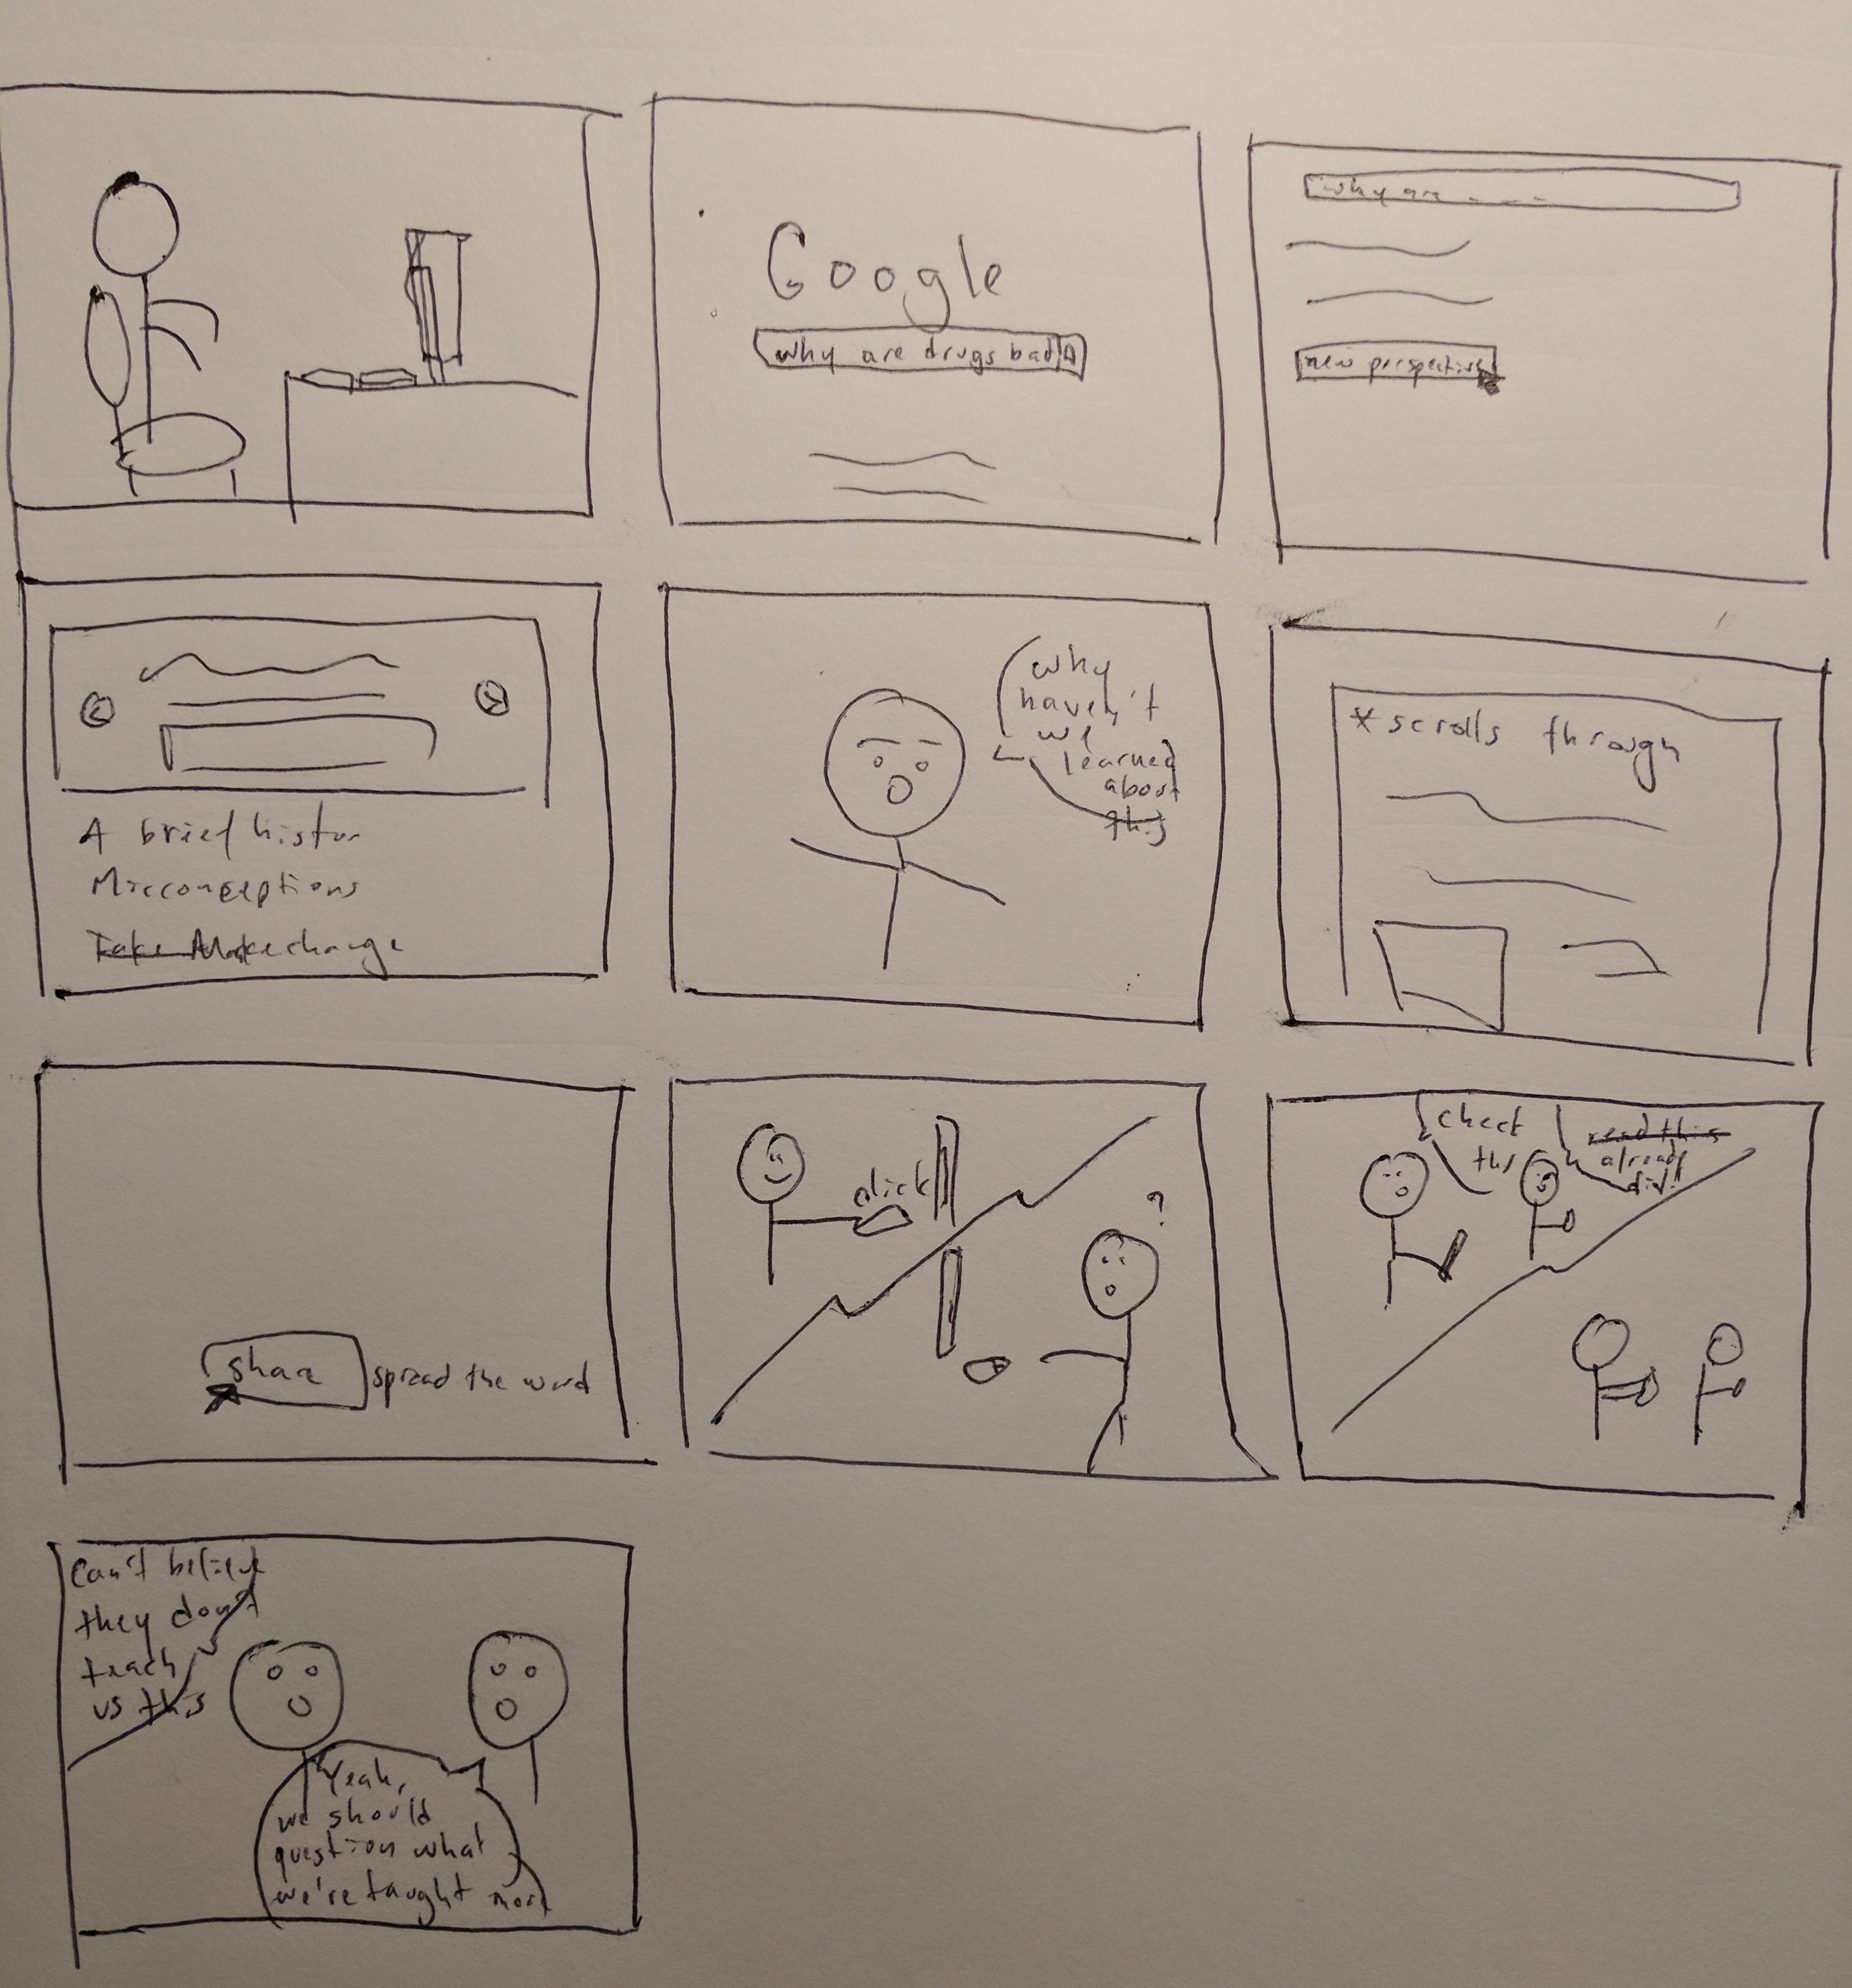 Google
why are drugs bad
why are ----
new perspective
A brief histor
Misconceptions
Take Make change
why
haven't
we
learned
about
this
*scrolls through
share
spread the word
click
?
check
this
read this
already
did!
Can't believe
they don't
teach
us this
Yeah,
we should
question what
we're taught more